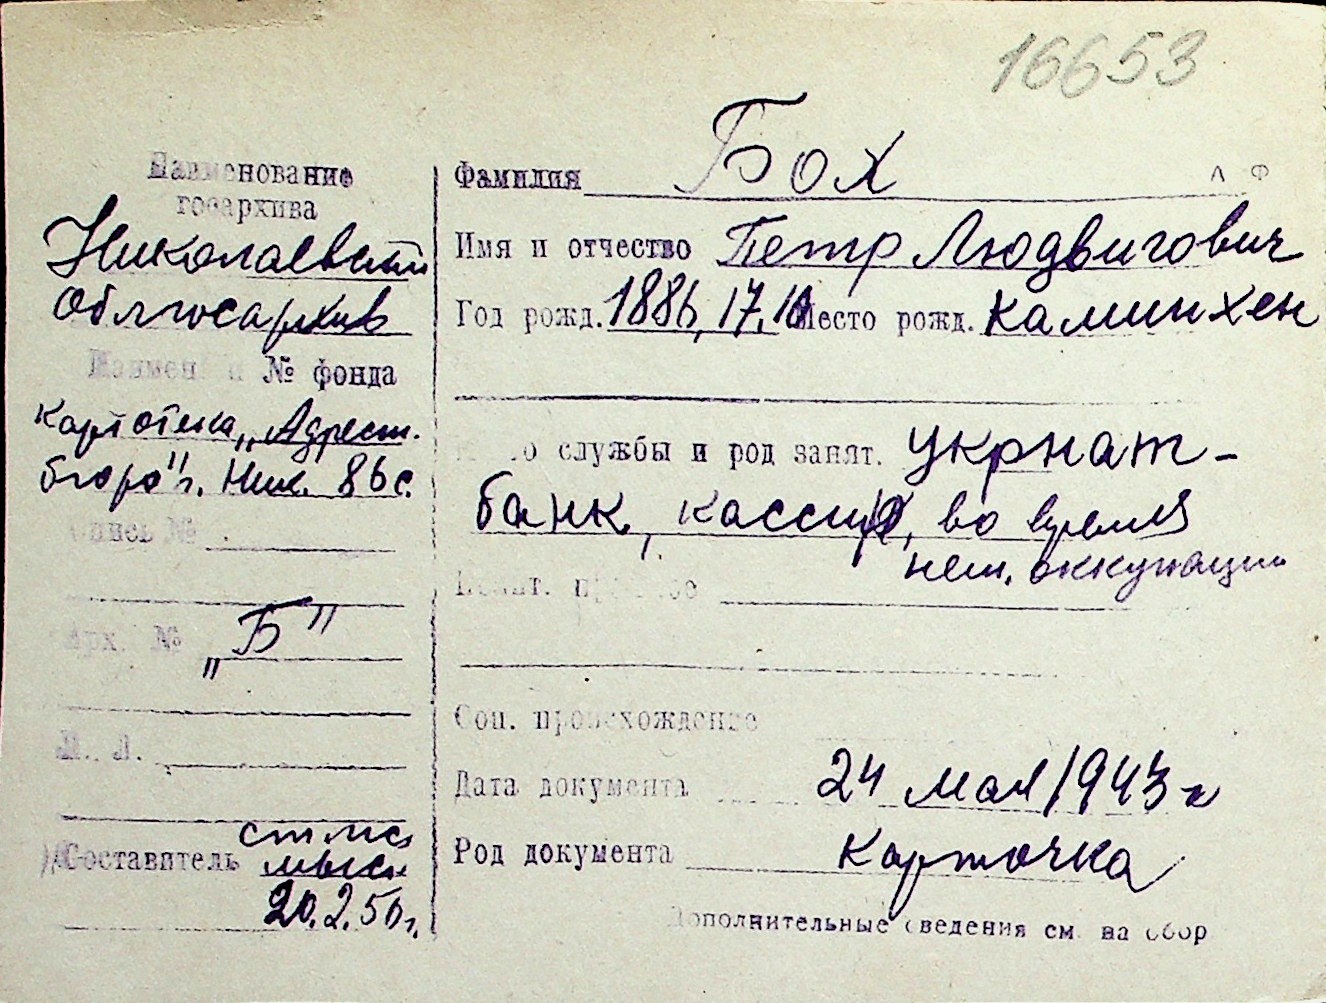 16653
Наименование
госархива
Николаевский
Облгосархив
Наимен и № фонда
картотека „Адресн.
бюро" г. Ник. 86 с.
Опись №
Арх. №
„Б"
П. Л.
Составитель
20.2.50 г.
Фамилия Бох
А Ф
Имя и отчество Петр Людвигович
Год рожд. 1886, 17.10 Место рожд. Каминхен
о службы и род занят. Укрнат-
банк, кассир, во время
нем. оккупации
Соц. происхождение
Дата документа 24 мая 1943 г
Род документа Карточка
Дополнительные сведения см. на обор